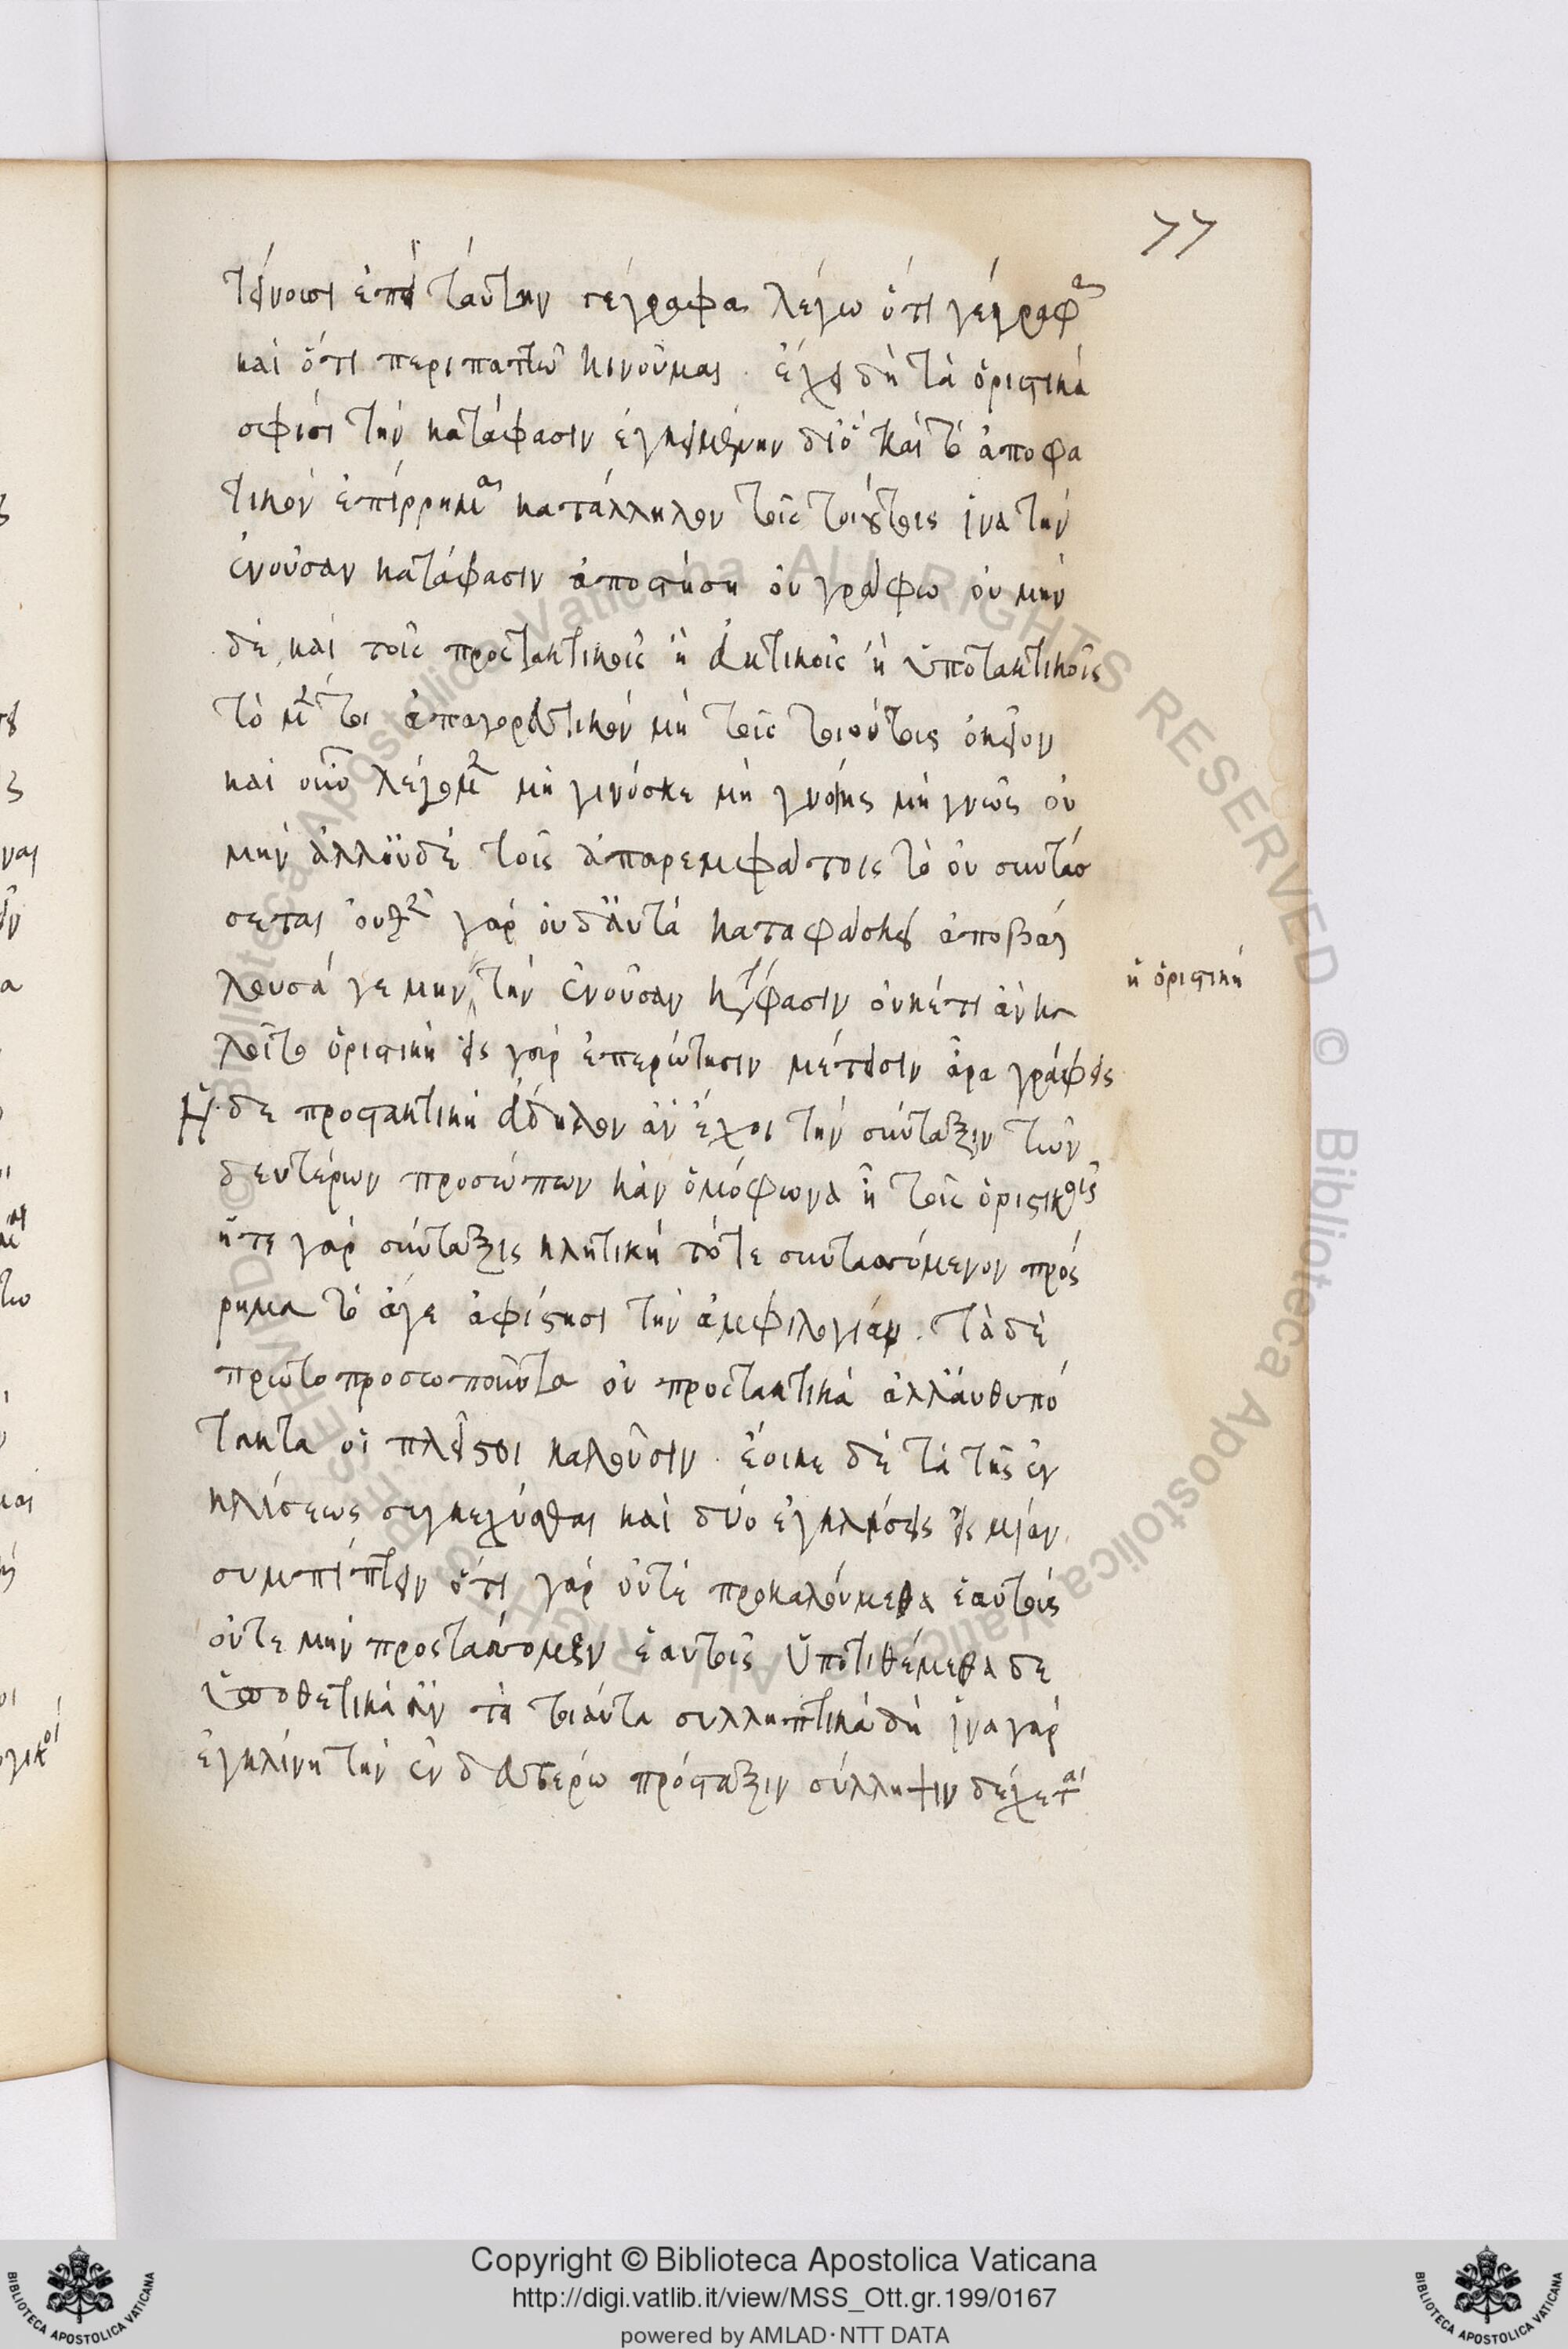 77
τείνουσι ἐπεὶ ταύτην γέγραφας λέγω ὅτι γέγραφα
καὶ ὅτι περιπατῶ κινοῦμαι . ἔχει δὴ τὰ ὁριστικὰ
σφίσι τὴν κατάφασιν ἐγκειμένην διὸ καὶ τὸ ἀποφα
τικὸν ἐπίρρημα κατάλληλον τοῖς τοιούτοις ἵνα τὴν
ἐνοῦσαν κατάφασιν ἀποστήση οὐ γράφω οὐ μὴν
δὲ καὶ τοῖς προστακτικοῖς ἢ εὐκτικοῖς ἢ ὑποτακτικοῖς
τὸ μέντοι ἀπαγορευτικὸν μὴ τοῖς τοιούτοις οἰκεῖον
καὶ οὕτω λέγομεν μὴ γινώσκε μὴ γνοίης μὴ γνῶς οὐ
μὴν ἀλλ' οὐδὲ τοῖς ἀπαρεμφάτοις τὸ οὐ συντάσ
σεται οὐδὲ γὰρ οὐδ' αὐτὰ καταφάσκει ἀποβάλ
λουσά γε μὴν τὴν ἐνοῦσαν κατάφασιν οὐκέτι ἂν κα
ἡ ὁριστική
λοῖτο ὁριστικὴ εἰς γὰρ ἐπερώτησιν μέτεισιν ἆρα γράφεις
Ἡ δε προστακτικὴ εὔδηλον ἂν ἔχοι τὴν σύνταξιν τῶν
δευτέρων προσώπων κἂν ὁμόφωνα ἦ τοῖς ὁριστικοῖς
ἥτε γὰρ σύνταξις κλητικὴ τότε συντασσόμενον πρὸς
ρημα τὸ ἄγε ἀφίστησι τὴν ἀμφιλογίαν . τὰ δὲ
πρωτοπροσωποῦντα οὐ προστακτικὰ ἀλλ' αὐθυπό
τακτα οἱ πλεῖστοι καλοῦσιν . ἔοικε δὲ τὰ τῆς ἐγ
κλίσεως συγκεχύσθαι καὶ δύο ἐγκλίσεις εἰς μίαν
συμπίπτειν ὅτι γὰρ οὔτε προκαλούμεθα ἑαυτοὺς
οὔτε μὴν προστάσσομεν ἑαυτοῖς ὑποτιθέμεθα δε
ὑποθετικὰ ἂν τὰ τοιαῦτα συλληπτικὰ δὴ ἵνα γὰρ
ἐγκλίνη τὴν ἐν δευτέρω πρόσταξιν σύλληψιν δέχεται
Copyright © Biblioteca Apostolica Vaticana
http://digi.vatlib.it/view/MSS_Ott.gr.199/0167
powered by AMLAD·NTT DATA